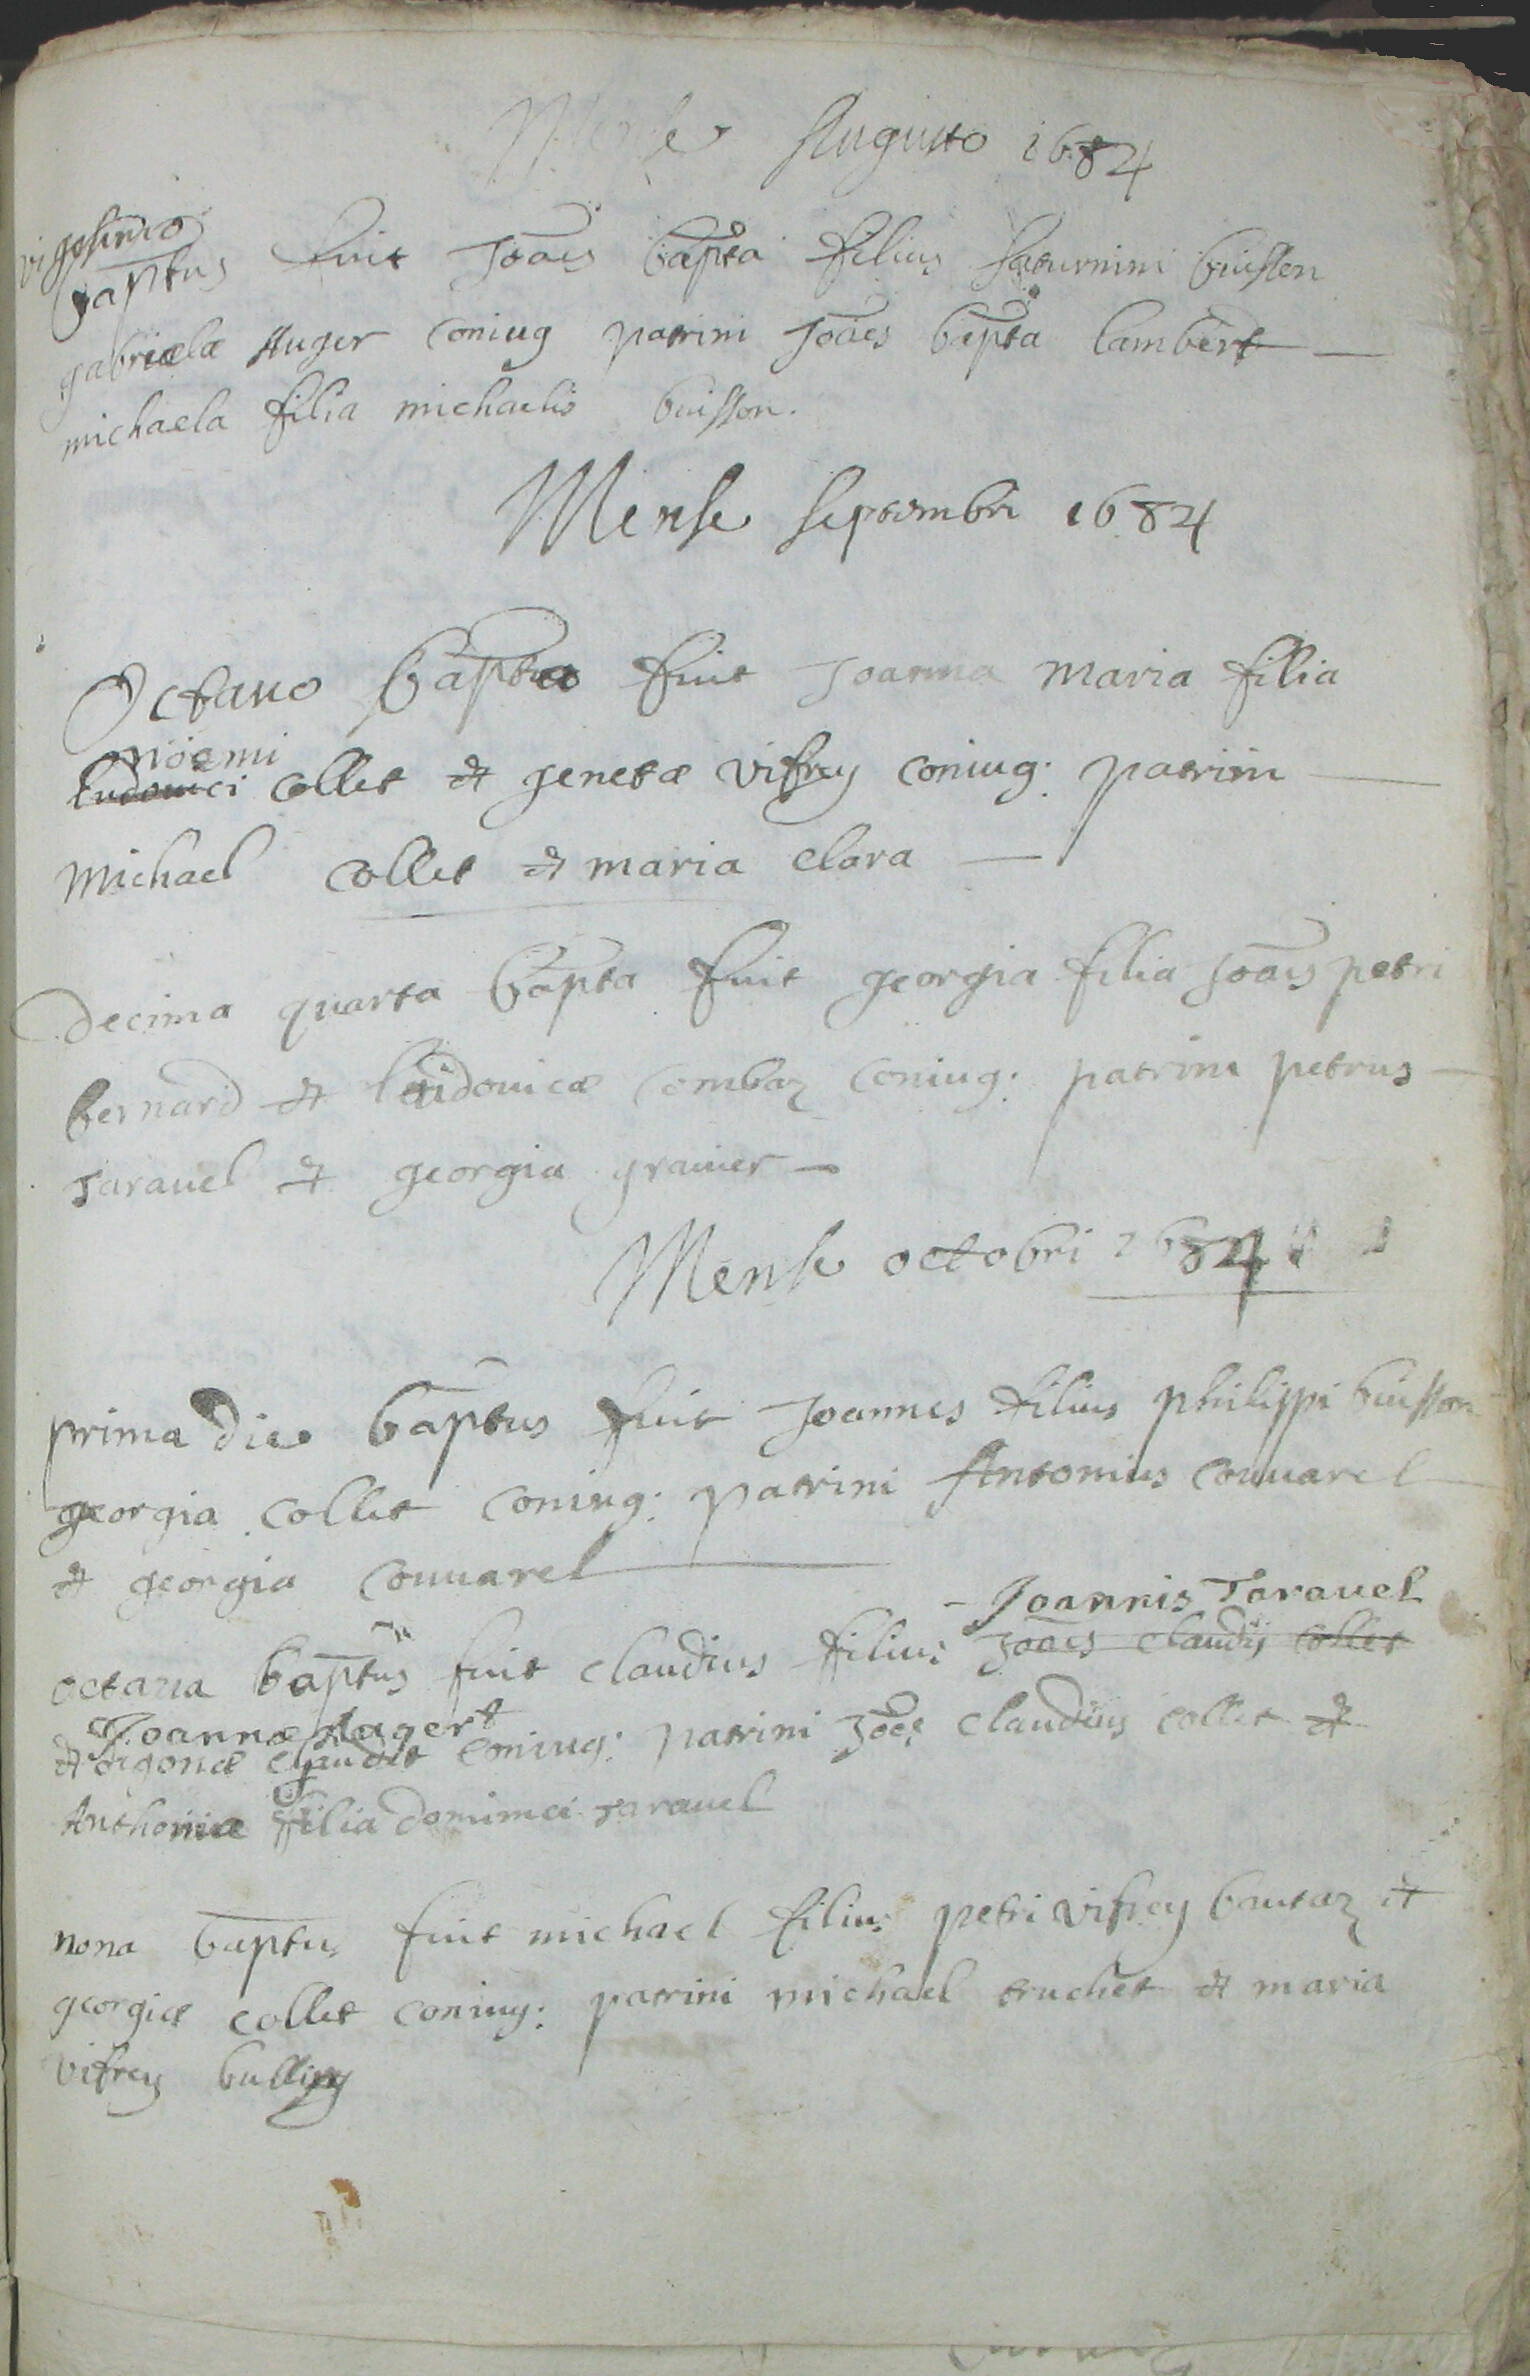 Mense Augusto 1684
vigesimo
baptus fuit Joães bapta filius saturnini buisson
gabrielæ Auger coniug patrini Joães bapta lambert
michaela filia michaelis buisson.
Mense septembri 1684
Octavo bapta fuit Joanna maria filia
noemi
Ludovici collet et genetæ vifrey coniug: patrini
Michael collet et maria clara
Decima quarta bapta fuit georgia filia Joães petri
bernard et ludovicæ combaz coniug: patrini petrus
Taravel et georgia gravier
Mense octobri 1684
prima die baptus fuit Joannes filius philippi buisson
georgia collet coniug: patrini Antonius couvarel
et georgia couvarel
Joannis Taravel
octava baptus fuit claudius filius Joães claudij collet
Joannæ Augert
et coniug: patrini Joães claudius collet et
Anthoniæ filia dominici taravel
nona baptus fuit michael filius petri vifrey bautaz et
georgiæ collet coniug: patrini michael truchet et maria
vifrey